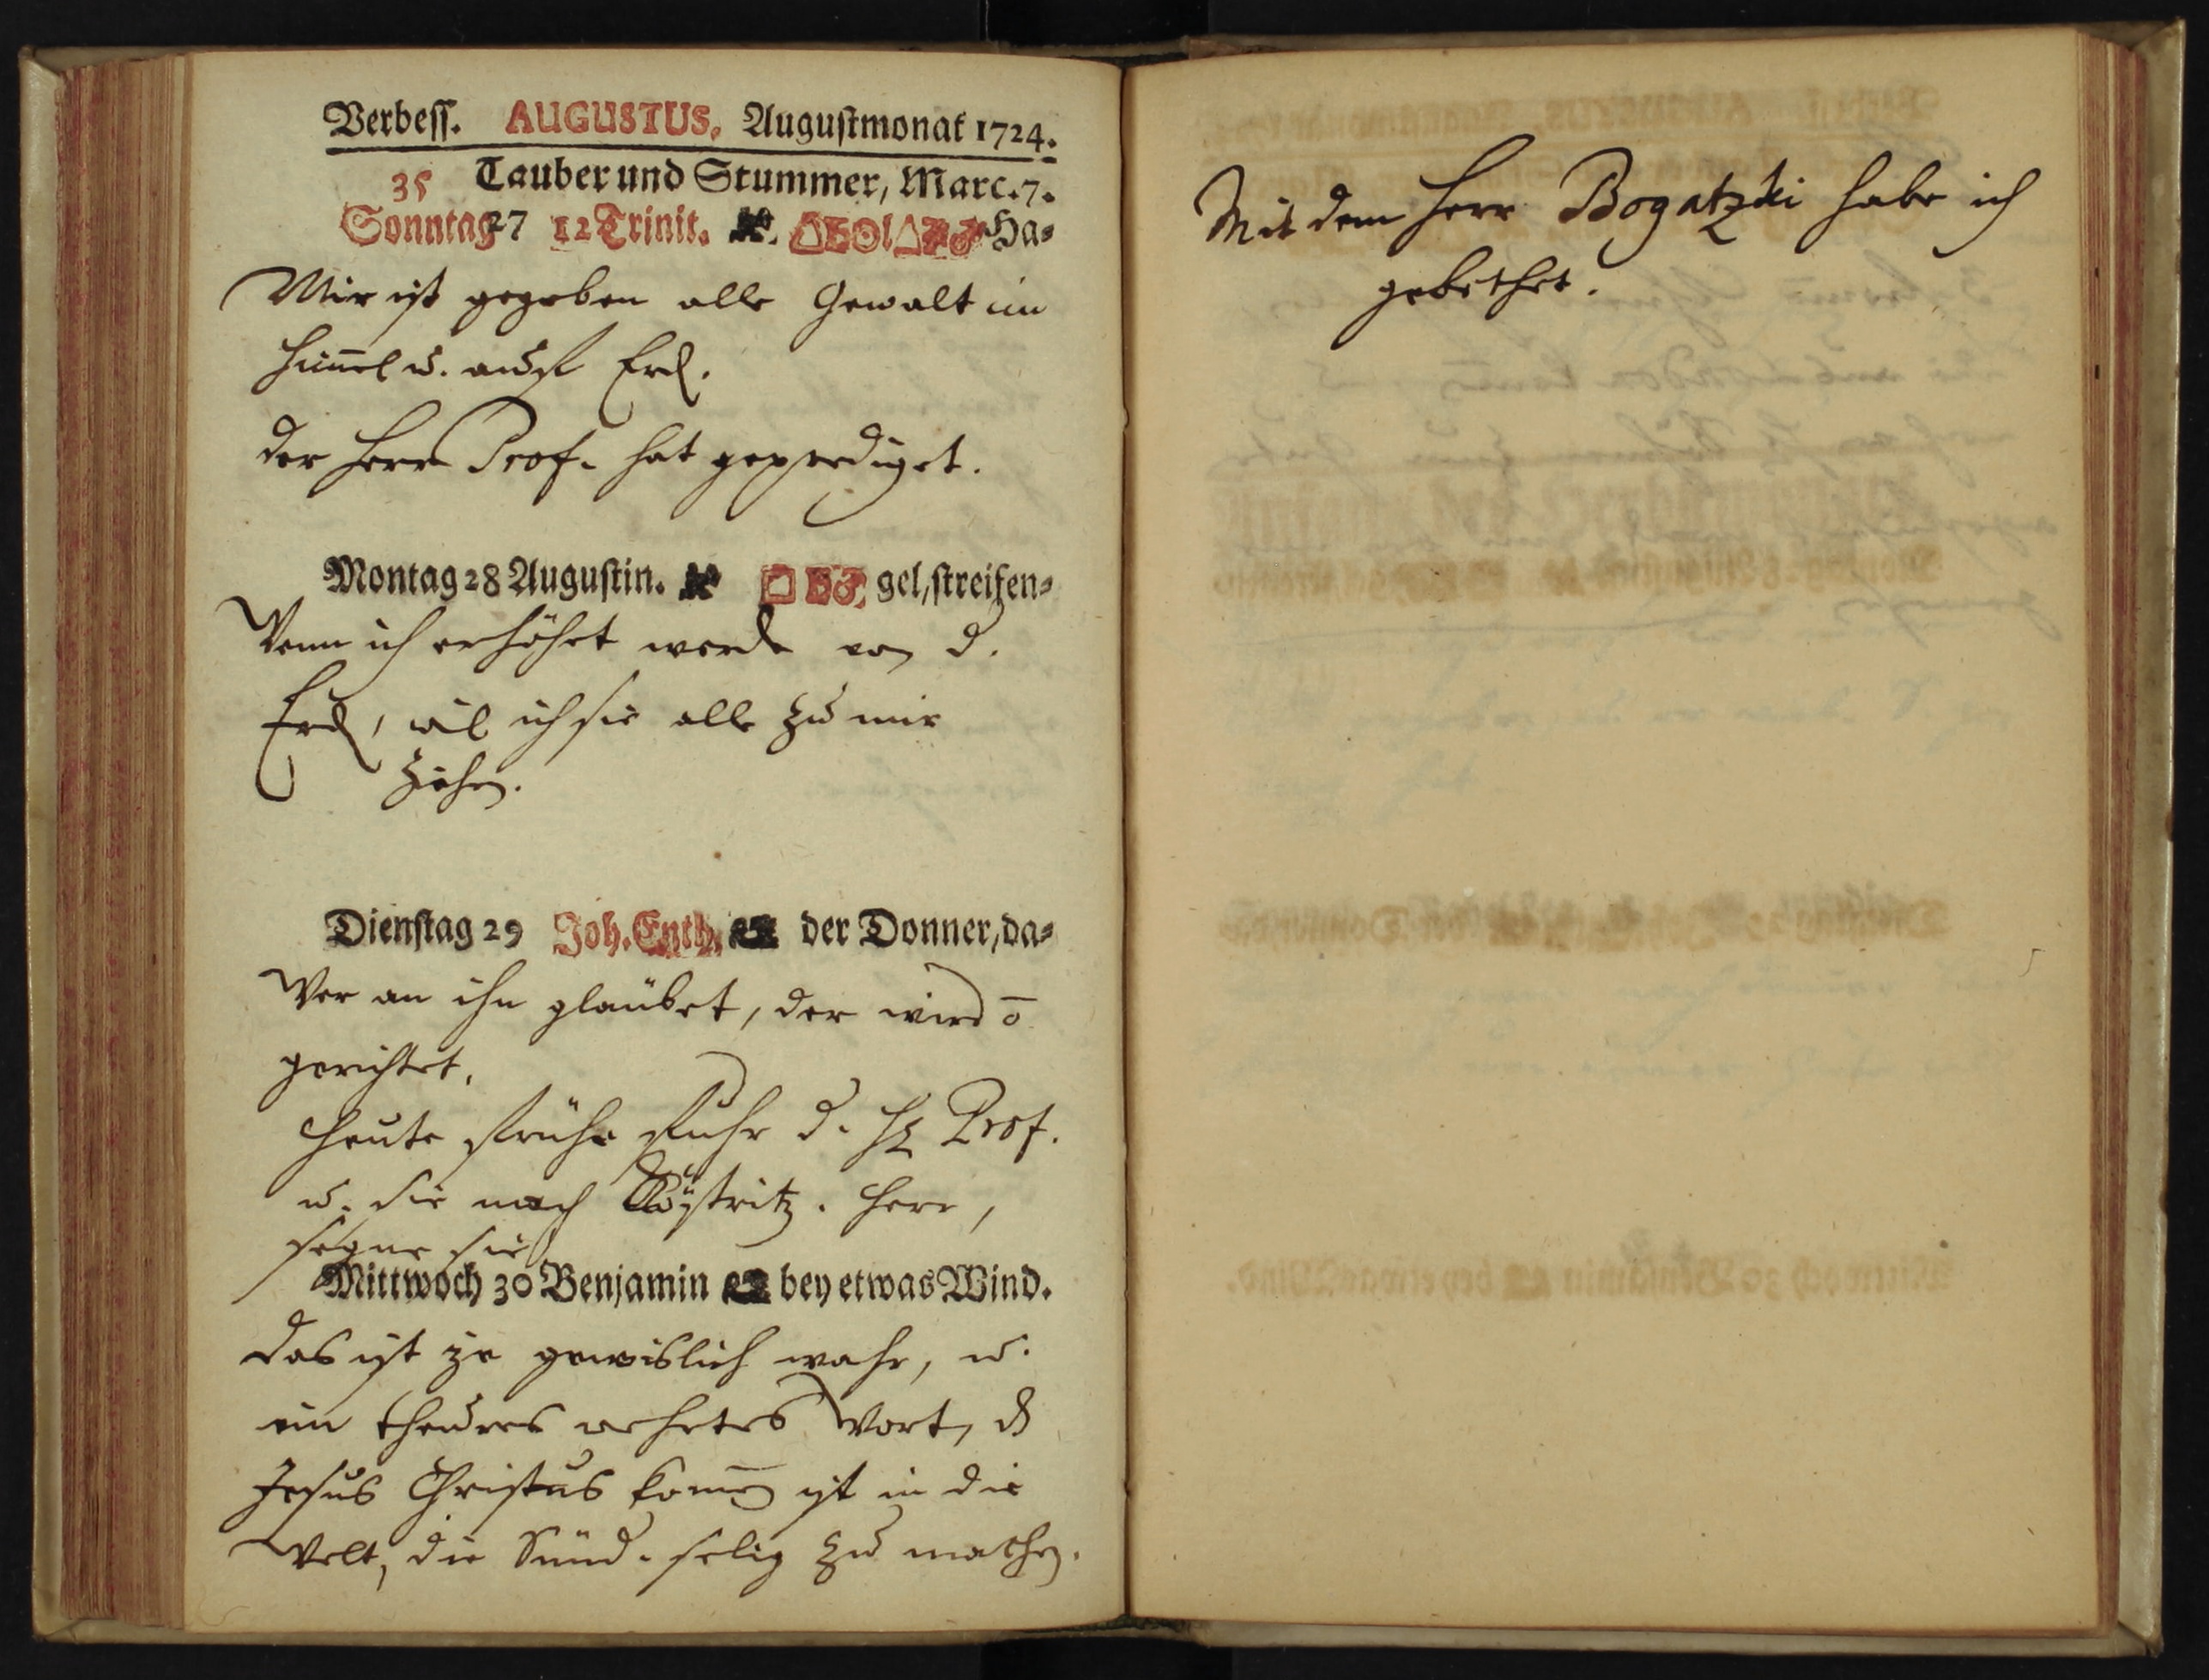 Verbess. AUGUSTUS. Augustmonat 1724.
35 Tauber und Stummer, Marc. 7.
Sonntag 27 12 Trinit. Ha-
Mir ist gegeben alle Gewalt im
Him̄el u. auff Erd.
der Herr Prof. hat geprediget.
Montag 28 Augustin. gel, streifen-
Wenn ich erhöhet werde von d.
Erd, wil ich sie alle zu mir
ziehen.
Dienstag 29 Joh. Enth. der Donner, da-
Wer an ihn glaübet, der wird ō
gerichtet.
Heute frühe fuhr d. H Prof.
u. sie nach Köstritz. Herr,
segne sie
Mittwoch 30 Benjamin bey etwas Wind.
Das ist je gewislich wahr, u.
ein theures wehrtes Wort, dß
Jesus Christus kom̄en ist in die
Welt, die Sünd. selig zu machen.
Mit dem Herr Bogatzki habe ich
gebethet.